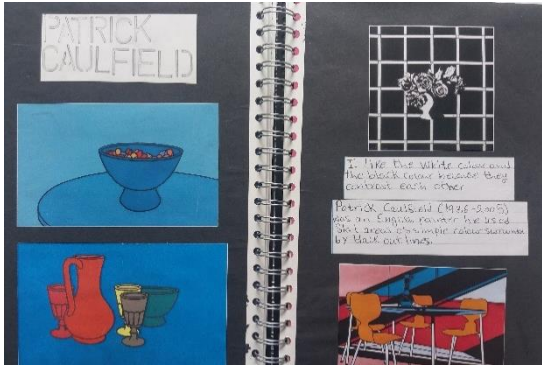 PATRICK
CAULFIELD
I like the white colour and
the black colour because they
contrast each other
Patrick Caulfield (1936-2005)
was an English painter he used
flat areas of simple colour surrounded
by black outlines.